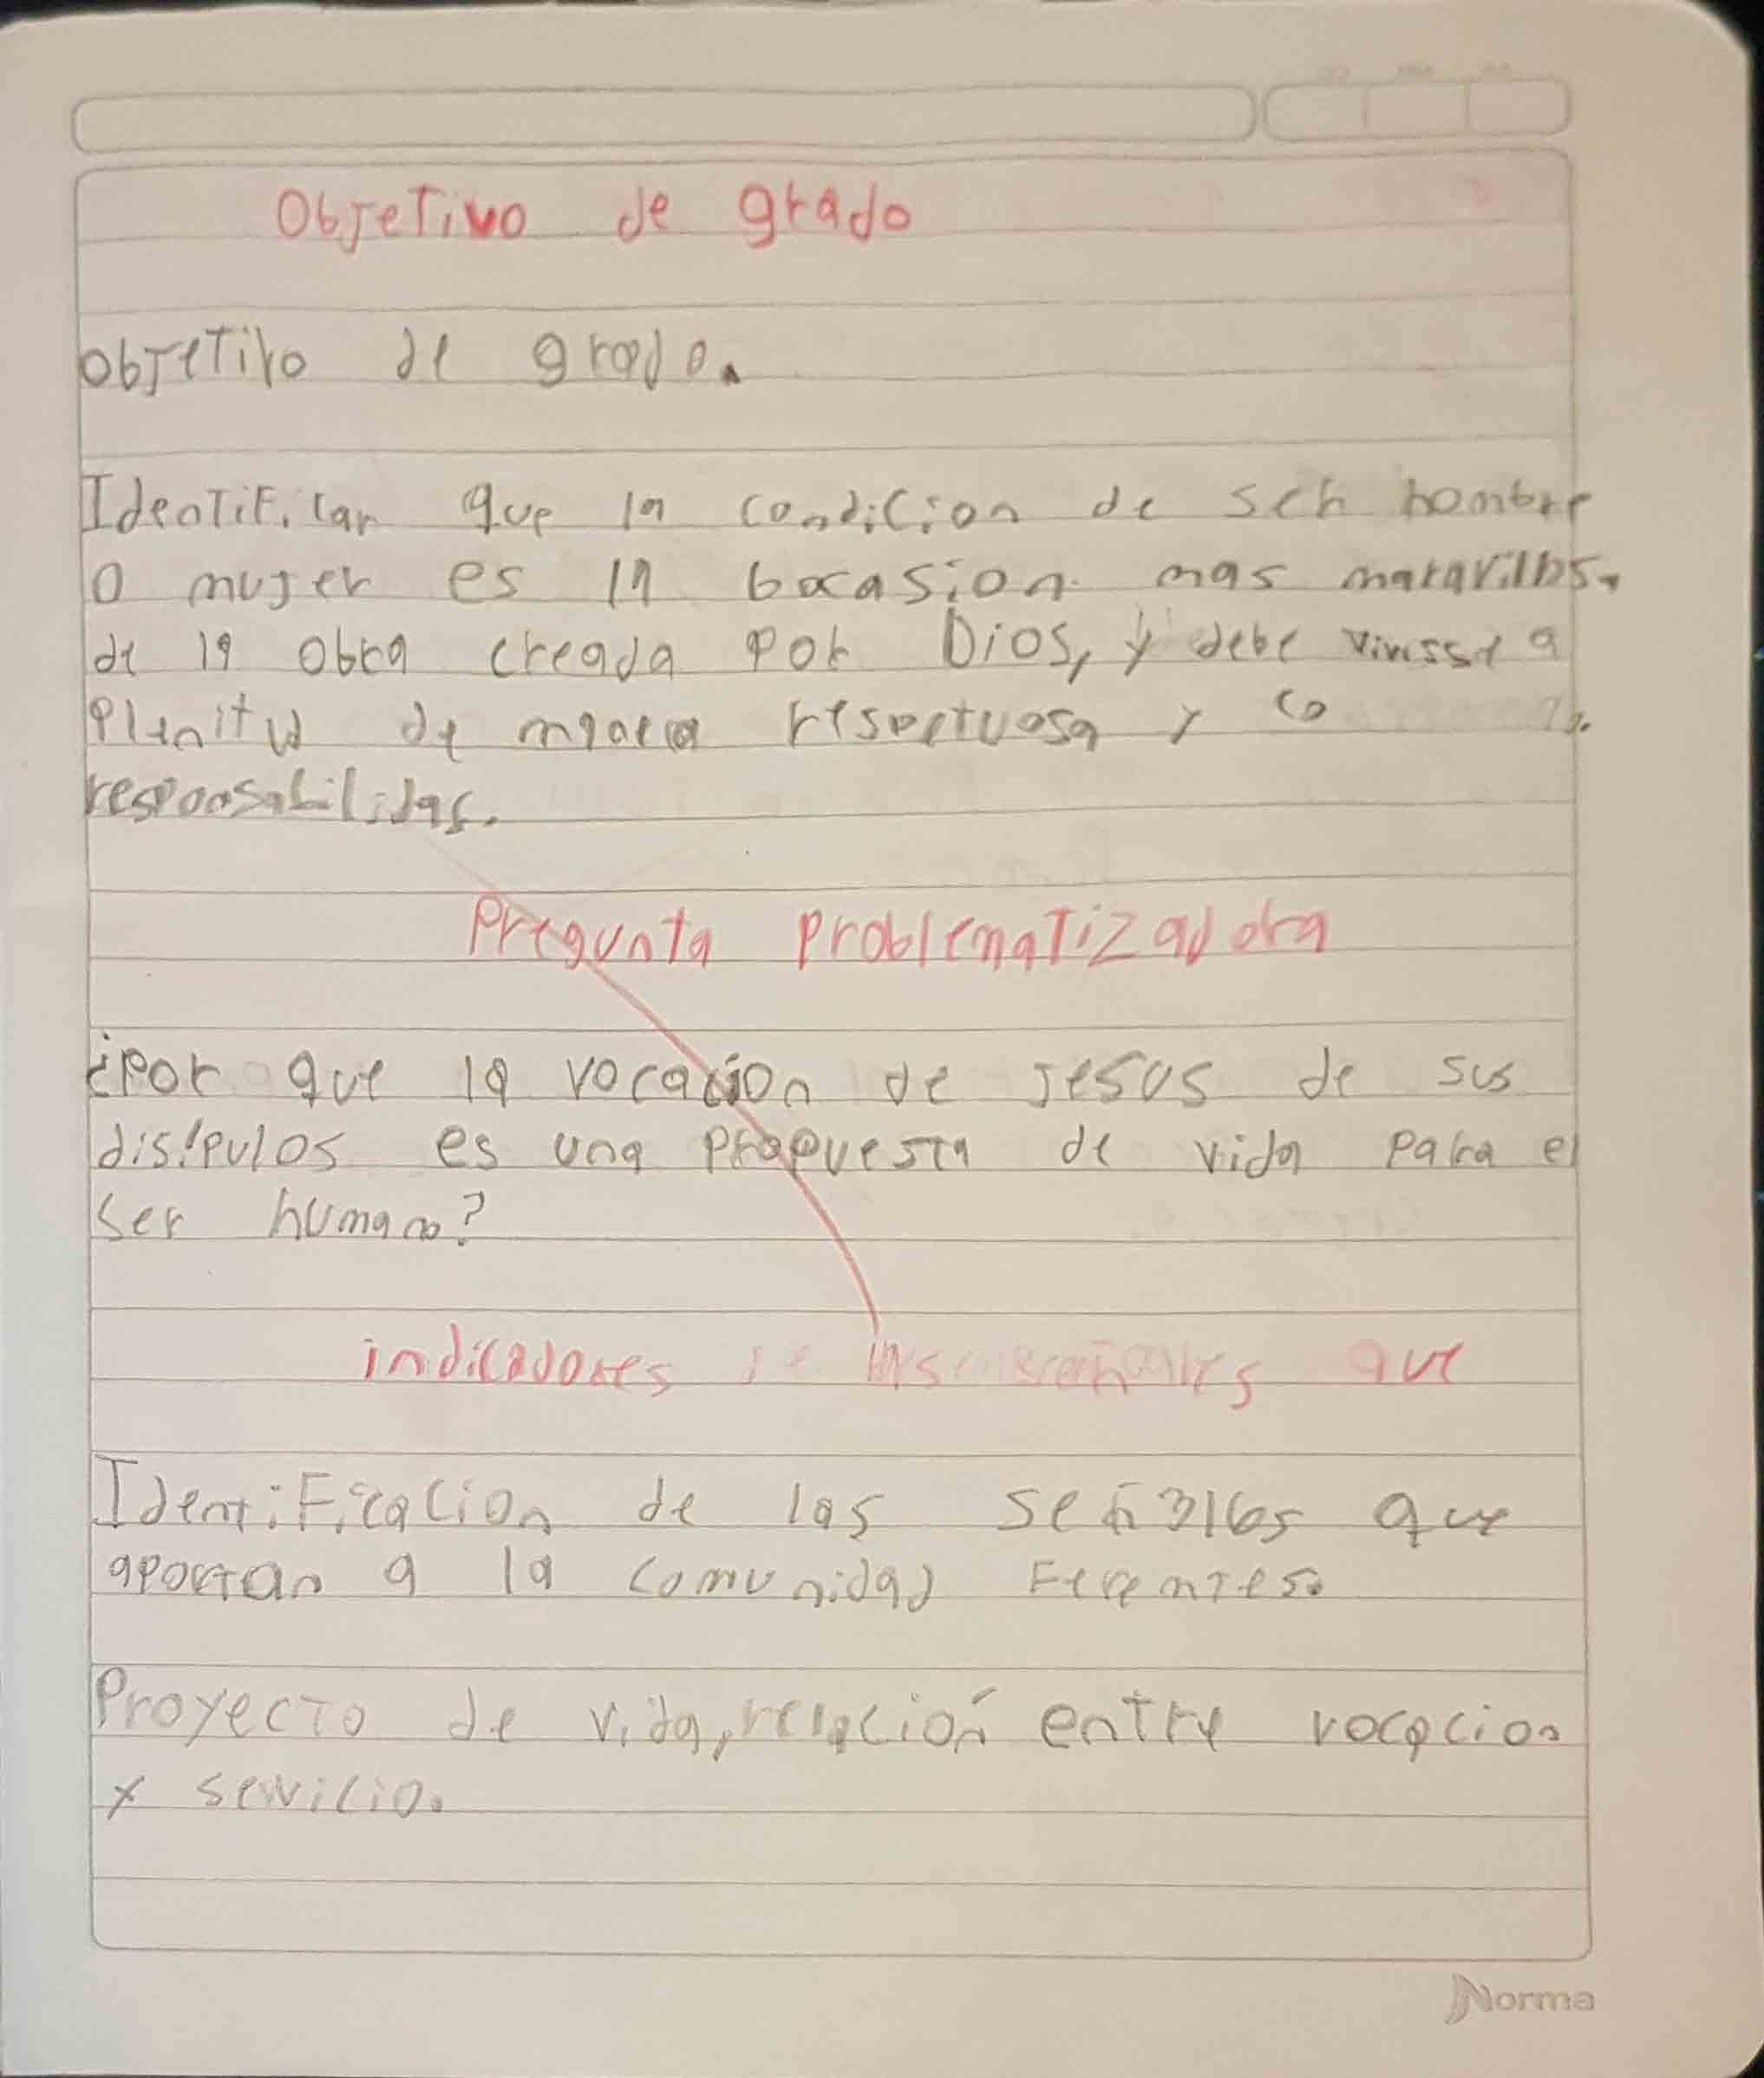 Objetivo de grado
objetivo de grado.
Identificar que la condicion de ser hombre
o mujer es la bocasion mas maravillosa
de la obra creada por Dios, y debe vivirse a
plenitud de manera respectuosa y co
responsabilidas.
Pregunta problematizadora
¿por que la vocacion de Jesus de sus
disipulos es una propuesta de vida para el
ser humano?
indicadores de que
Identificacion de las señales que
aportan a la comunidad
Proyecto de vida, relación entre vocacion
y servicio.
Norma